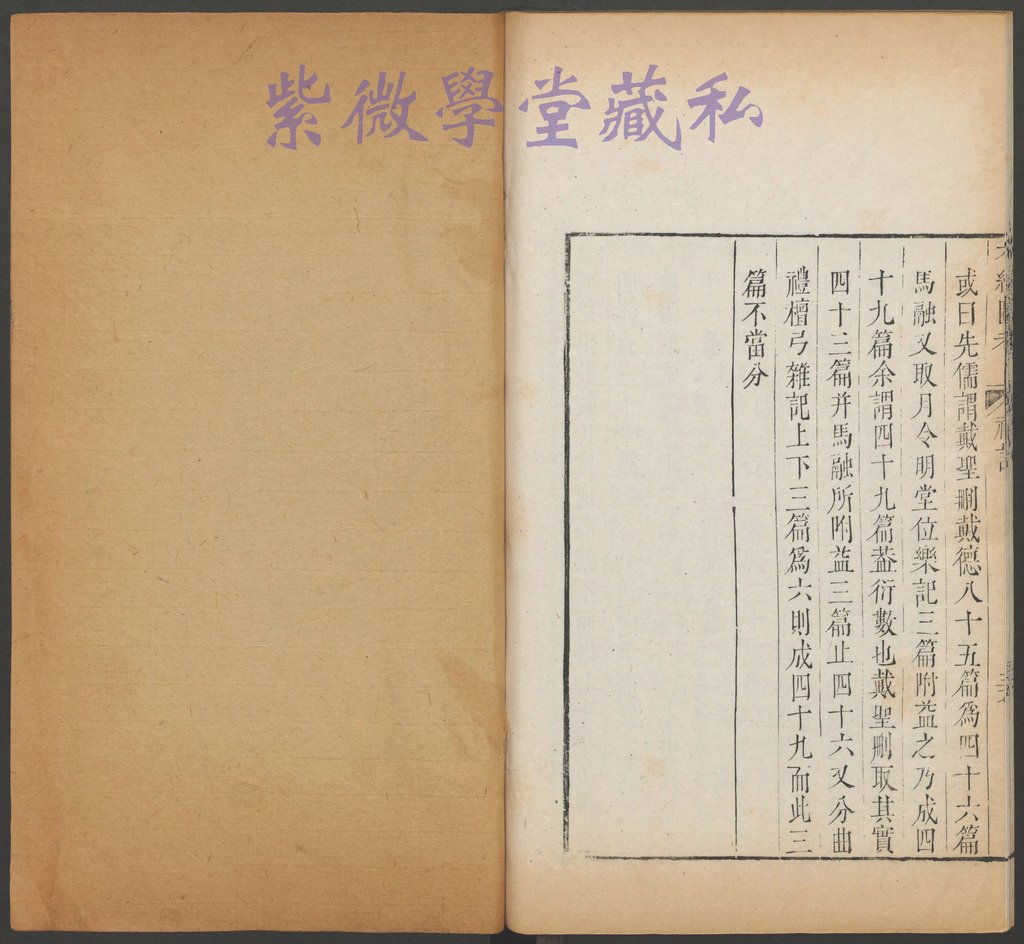 紫微學堂藏私
或曰先儒謂戴聖刪戴德八十五篇爲四十六篇
馬融又取月令明堂位樂記三篇附益之乃成四
十九篇余謂四十九篇葢衍數也戴聖刪取其實
四十三篇并馬融所附益三篇止四十六又分曲
禮檀弓雜記上下三篇爲六則成四十九而此三
篇不當分